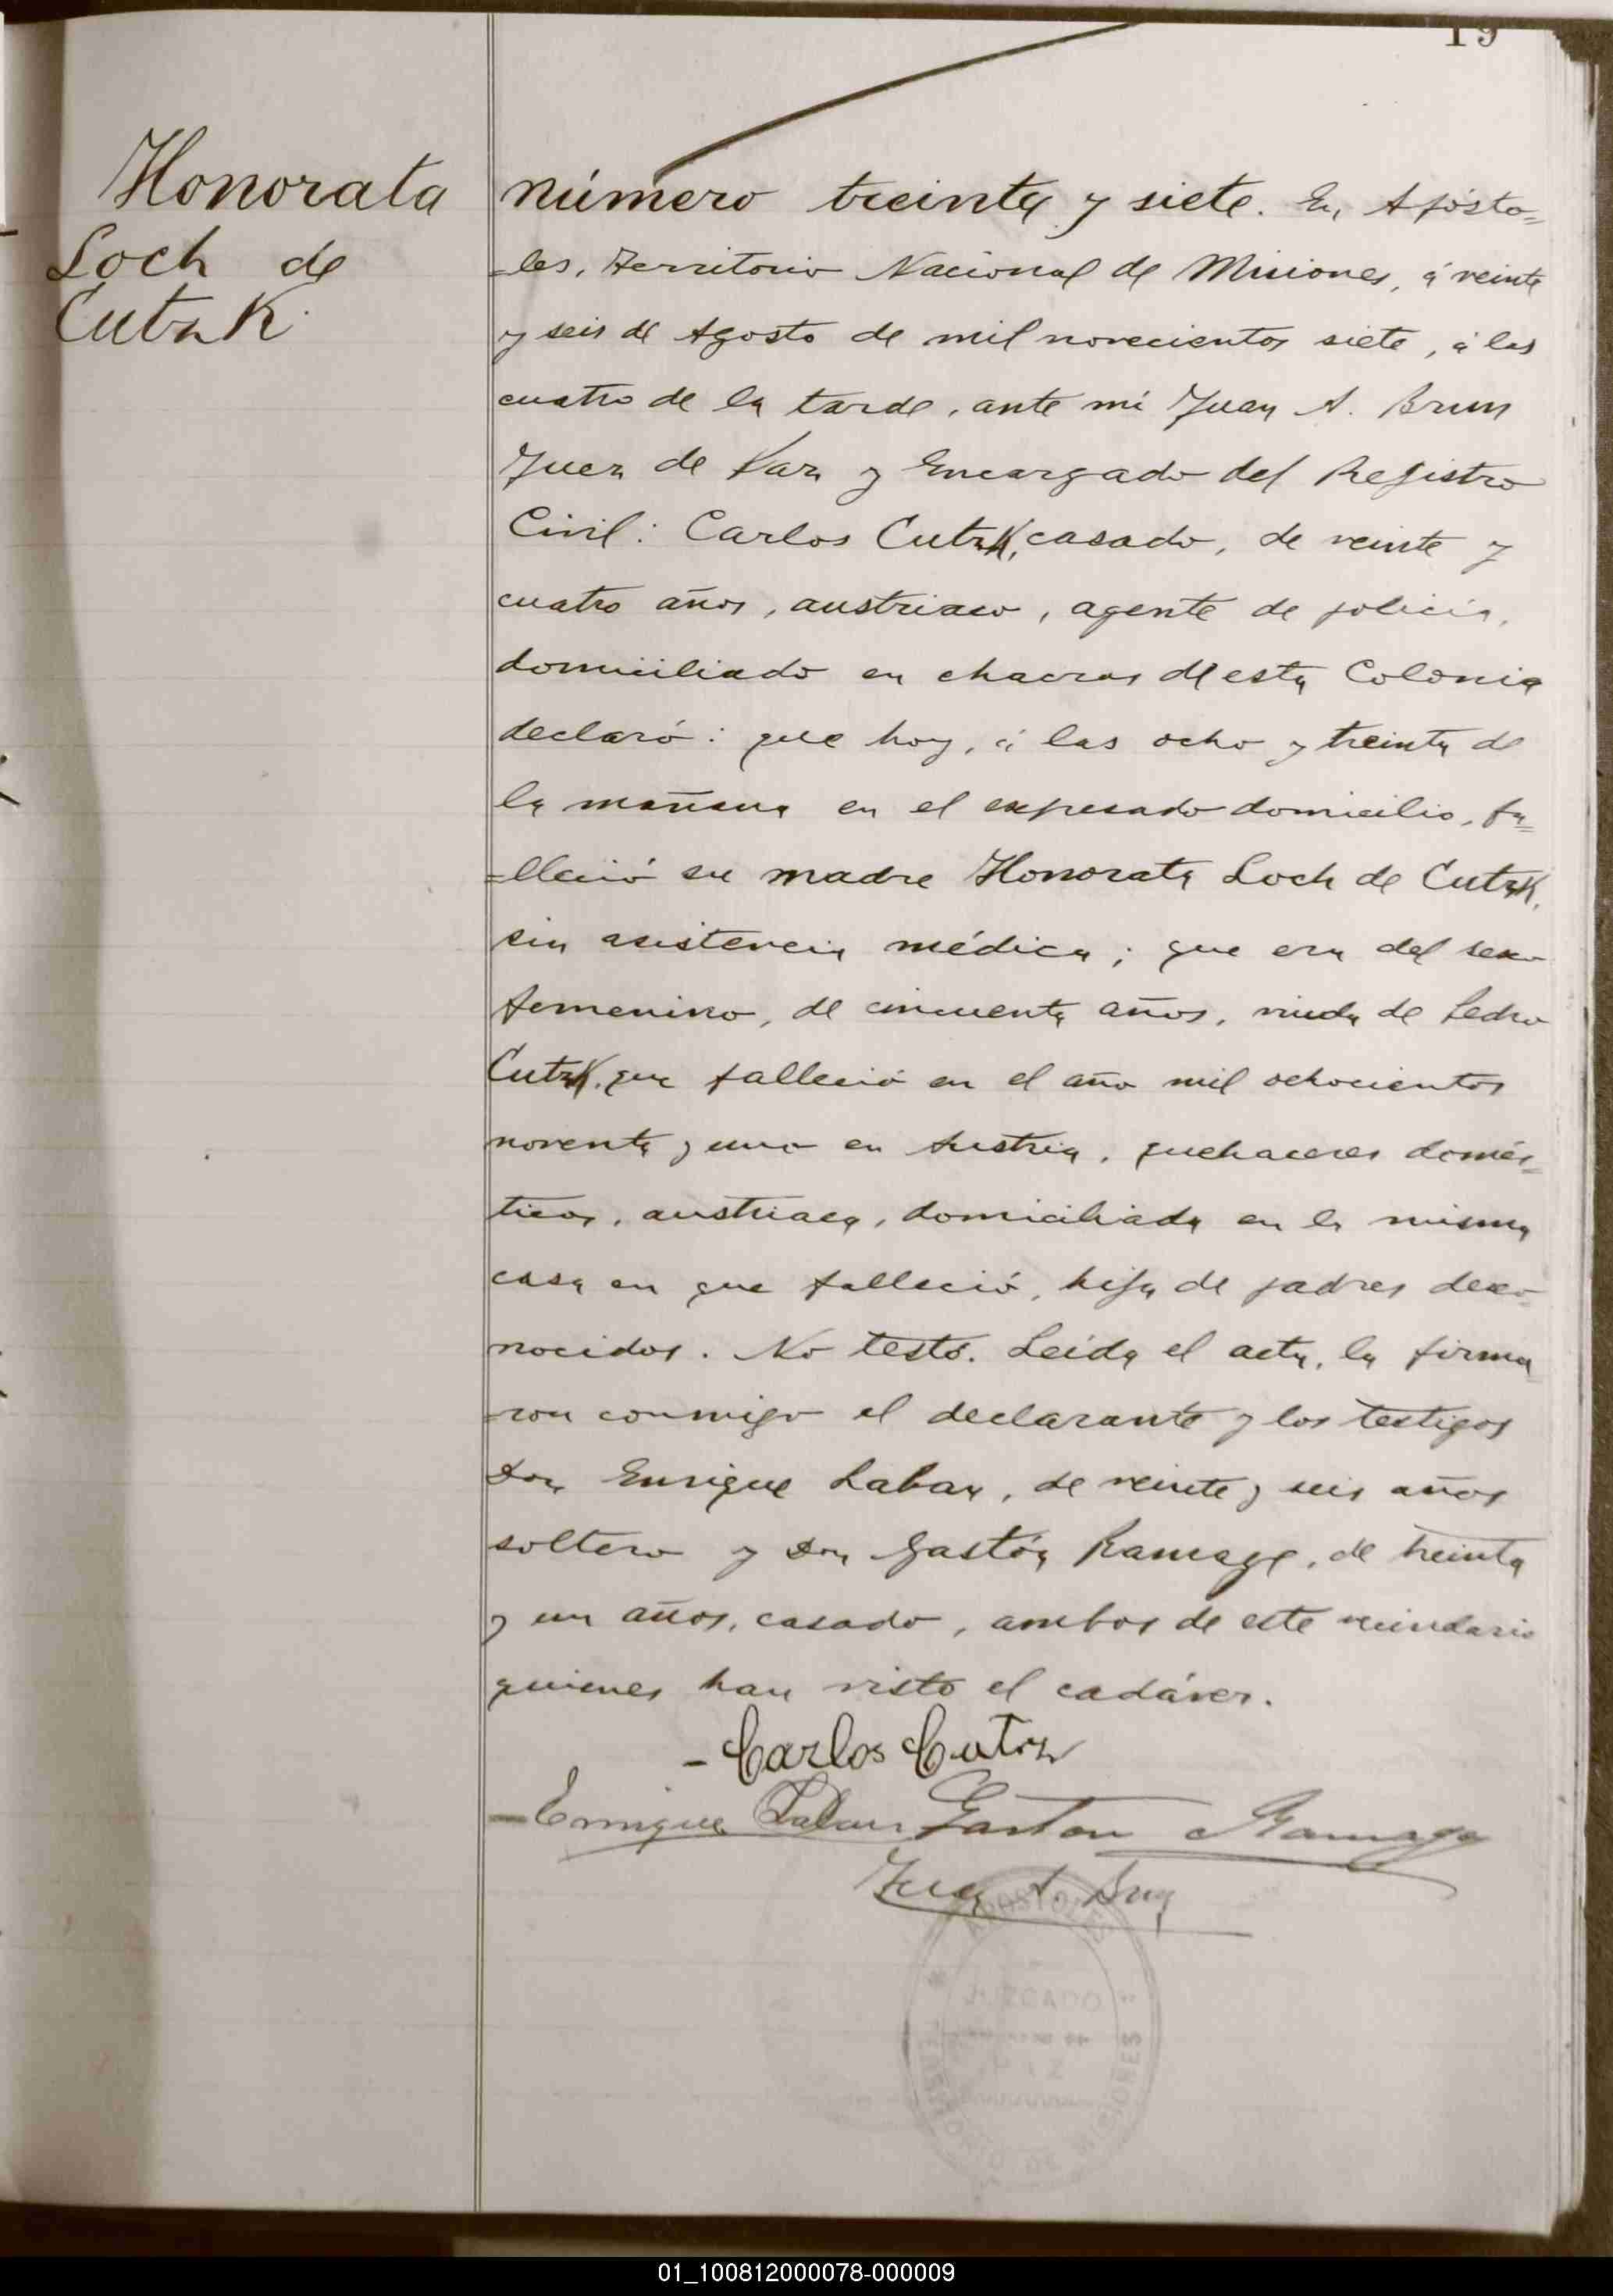 19
Honorata
Loch de
Cutzk
Número treinta y siete. En Apósto=
=les, Territorio Nacional de Misiones, á veinte
y seis de Agosto de mil novecientos siete, á las
cuatro de la tarde, ante mi Juan A. Brun
Juez de Paz y Encargado del Registro
Civil: Carlos Cutzk, casado, de veinte y
cuatro años, austriaco, agente de policía,
domiciliado en chacras de esta Colonia
declaró: que hoy, á las ocho y treinta de
la mañana en el expresado domicilio, fa=
=lleció su madre Honorata Loch de Cutzk,
sin asistencia médica; que era del sexo
femenino, de cincuenta años, viuda de Pedro
Cutzk, que falleció en el año mil ochocientos
noventa y uno en Austria, quehaceres domés=
ticos, austriaca, domiciliada en la misma
casa en que falleció, hija de padres desco=
nocidos. No testó. Leida el acta, la firma=
=ron conmigo el declarante y los testigos
Don Enrique Laban, de veinte y seis años
soltero y Don Gastón Ramage, de treinta
y un años, casado, ambos de este vecindario
quienes han visto el cadáver.
- Carlos Cutzk
- Enrique Laban Gaston Ramage
Juan A. Brun
APOSTOLES
JUZGADO
DE
PAZ
TERRITORIO DE MISIONES
01_100812000078-000009